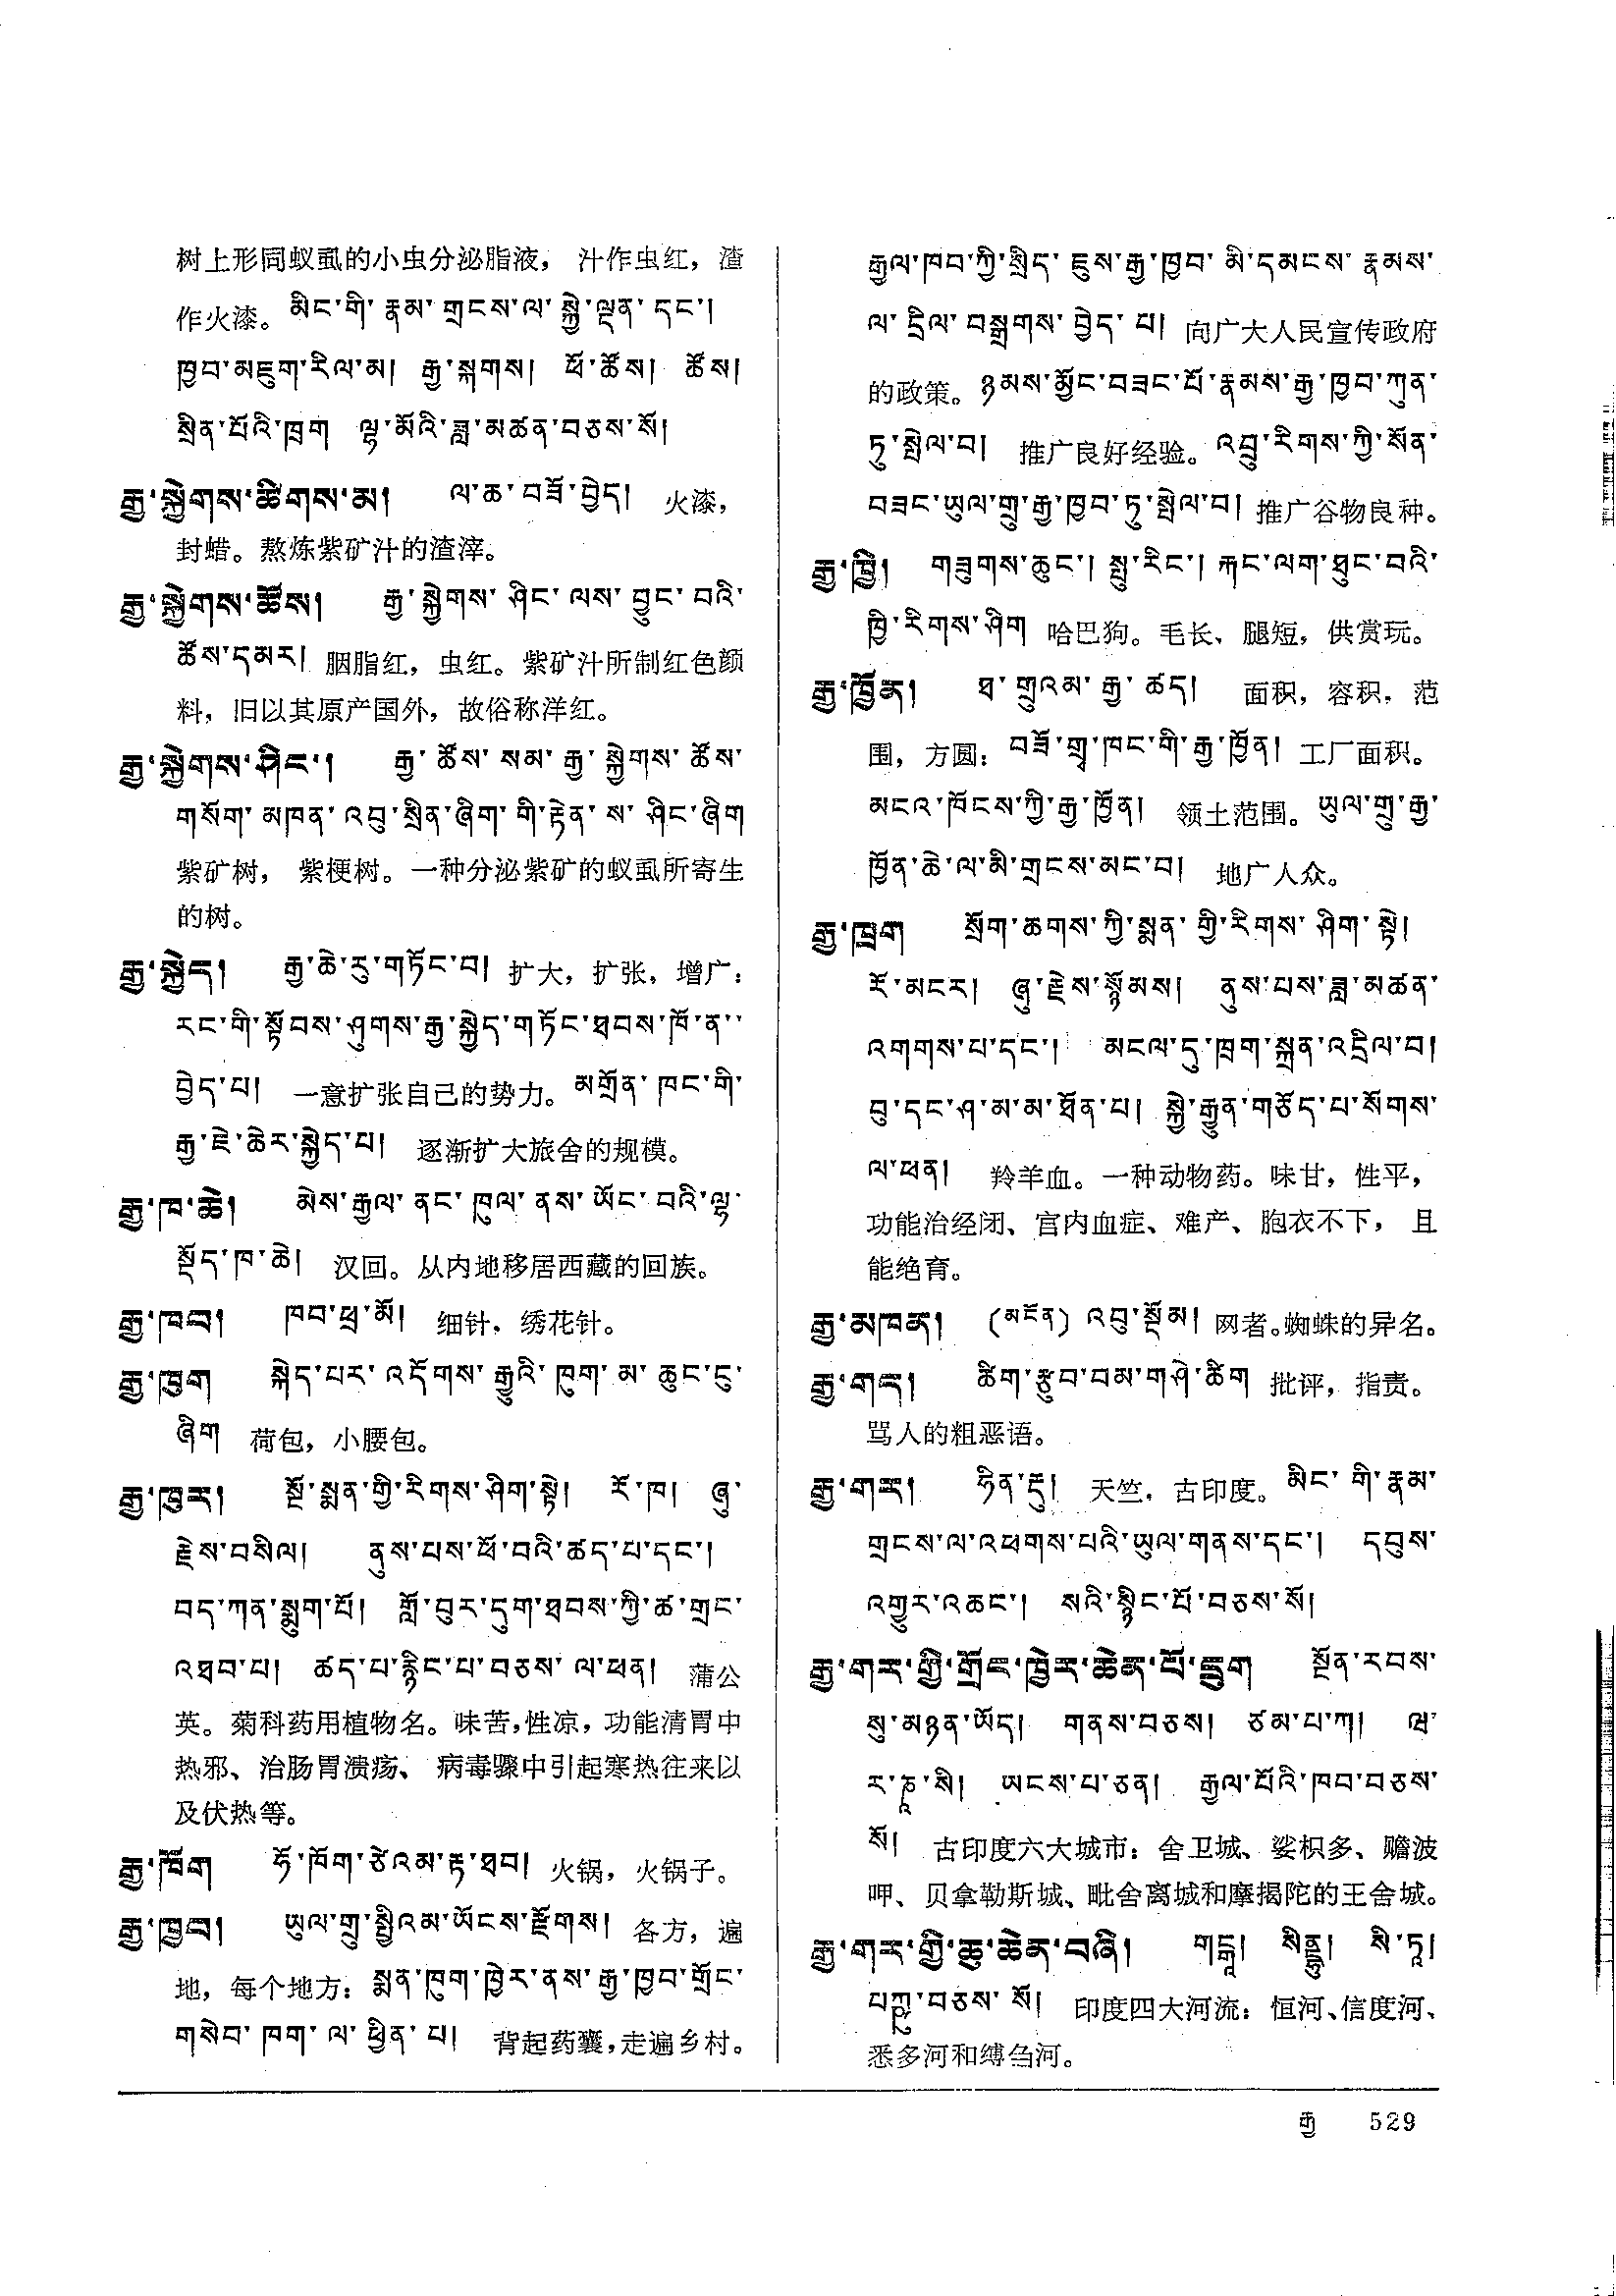 树上形同蚁虱的小虫分泌脂液， 汁作虫红，渣
作火漆。མིང་གི་ རྣམ་ གྲངས་ལ་ སྐྱེ་ལྡན་ དང་།
ཁྱབ་མཇུག་རིལ་མ། རྒྱ་སྐགས། ཕོ་ཚོས། ཚོས།
སྲིན་པོའི་ཁྲག ལྷ་མོའི་ཟླ་མཚན་བཅས་སོ།
རྒྱ་སྐྱེགས་ཚིགས་མ། ལ་ཆ་བཟོ་བྱེད། 火漆，
封蜡。熬炼紫矿汁的渣滓。
རྒྱ་སྐྱེགས་ཚོས། རྒྱ་སྐྱེགས་ ཤིང་ ལས་ བྱུང་ བའི་
ཚོས་དམར། 胭脂红，虫红。紫矿汁所制红色颜
料，旧以其原产国外，故俗称洋红。
རྒྱ་སྐྱེགས་ཤིང་། རྒྱ་ ཚོས་ སམ་ རྒྱ་ སྐྱེགས་ ཚོས་
གསོག་ མཁན་ འབུ་སྲིན་ཞིག་ གི་རྟེན་ ས་ ཤིང་ཞིག
紫矿树， 紫梗树。一种分泌紫矿的蚁虱所寄生
的树。
རྒྱ་སྐྱེད། རྒྱ་ཆེ་རུ་གཏོང་བ། 扩大，扩张，增广：
རང་གི་སྟོབས་ཤུགས་རྒྱ་སྐྱེད་གཏོང་ཐབས་ཁོ་ན་
བྱེད་པ། 一意扩张自己的势力。མགྲོན་ ཁང་གི་
རྒྱ་ཇེ་ཆེར་སྐྱེད་པ། 逐渐扩大旅舍的规模。
རྒྱ་ཁ་ཆེ། མེས་རྒྱལ་ ནང་ ཁུལ་ ནས་ ཡོང་ བའི་ལྷ་
སྡོད་ཁ་ཆེ། 汉回。从内地移居西藏的回族。
རྒྱ་ཁབ། ཁབ་ཕྲ་མོ། 细针，绣花针。
རྒྱ་ཁུག སྐེད་པར་ འདོགས་ རྒྱུའི་ ཁུག་ མ་ ཆུང་ངུ་
ཞིག 荷包，小腰包。
རྒྱ་ཁུར། སྔོ་སྨན་གྱི་རིགས་ཤིག་སྟེ། རོ་ཁ། ཞུ་
རྗེས་བསིལ། ནུས་པས་ཕོ་བའི་ཚད་པ་དང་།
བད་ཀན་སྨུག་པོ། གློ་བུར་དུག་ཐབས་ཀྱི་ཚ་གྲང་
འཐབ་པ། ཚད་པ་རྙིང་པ་བཅས་ ལ་ཕན། 蒲公
英。菊科药用植物名。味苦，性凉，功能清胃中
热邪、治肠胃溃疡、 病毒骤中引起寒热往来以
及伏热等。
རྒྱ་ཁོག ཧོ་ཁོག་ཙེའམ་རྟ་ཐབ། 火锅，火锅子。
རྒྱ་ཁྱབ། ཡུལ་གྲུ་སྤྱིའམ་ཡོངས་རྫོགས། 各方，遍
地，每个地方：སྨན་ཁུག་ཁྱེར་ནས་རྒྱ་ཁྱབ་གྲོང་
གསེབ་ ཁག་ ལ་ ཕྱིན་ པ། 背起药囊，走遍乡村。
རྒྱལ་ཁབ་ཀྱི་སྲིད་ ཇུས་རྒྱ་ཁྱབ་ མི་དམངས་ རྣམས་
ལ་ དྲིལ་ བསྒྲགས་ བྱེད་ པ། 向广大人民宣传政府
的政策。ཉམས་མྱོང་བཟང་པོ་རྣམས་རྒྱ་ཁྱབ་ཀུན་
ཏུ་སྤེལ་བ། 推广良好经验。འབྲུ་རིགས་ཀྱི་སོན་
བཟང་ཡུལ་གྲུ་རྒྱ་ཁྱབ་ཏུ་སྤེལ་བ། 推广谷物良种。
རྒྱ་ཁྱི། གཟུགས་ཆུང་། སྤུ་རིང་། རྐང་ལག་ཐུང་བའི་
ཁྱི་རིགས་ཤིག 哈巴狗。毛长、腿短，供赏玩。
རྒྱ་ཁྱོན། ཐ་ གྲུའམ་ རྒྱ་ ཚད། 面积，容积，范
围，方圆：བཟོ་གྲྭ་ཁང་གི་རྒྱ་ཁྱོན། 工厂面积。
མངའ་ཁོངས་ཀྱི་རྒྱ་ཁྱོན། 领土范围。ཡུལ་གྲུ་རྒྱ་
ཁྱོན་ཆེ་ལ་མི་གྲངས་མང་བ། 地广人众。
རྒྱ་ཁྲག སྲོག་ཆགས་ཀྱི་སྨན་ གྱི་རིགས་ ཤིག་ སྟེ།
རོ་མངར། ཞུ་རྗེས་སྙོམས། ནུས་པས་ཟླ་མཚན་
འགགས་པ་དང་། མངལ་དུ་ཁྲག་སྐྲན་འདྲིལ་བ།
བུ་དང་ཤ་མ་མ་ཐོན་པ། སྐྱེ་རྒྱུན་གཅོད་པ་སོགས་
ལ་ཕན། 羚羊血。一种动物药。味甘，性平，
功能治经闭、宫内血症、难产、胞衣不下， 且
能绝育。
རྒྱ་མཁན། (མངོན) འབུ་སྡོམ། 网者。蜘蛛的异名。
རྒྱ་གད། ཚིག་རྩུབ་བམ་གཤེ་ཚིག 批评，指责。
骂人的粗恶语。
རྒྱ་གར། ཧིན་རྡུ། 天竺，古印度。མིང་ གི་རྣམ་
གྲངས་ལ་འཕགས་པའི་ཡུལ་གནས་དང་། དབུས་
འགྱུར་འཆང་། སའི་སྙིང་པོ་བཅས་སོ།
རྒྱ་གར་གྱི་གྲོང་ཁྱེར་ཆེན་པོ་དྲུག སྔོན་རབས་
སུ་མཉན་ཡོད། གནས་བཅས། ཙམ་པ་ཀ། ཝ་
ར་ཎཱ་སི། ཡངས་པ་ཅན། རྒྱལ་པོའི་ཁབ་བཅས་
སོ། 古印度六大城市：舍卫城、娑枳多、赡波
呷、贝拿勒斯城、毗舍离城和摩揭陀的王舍城。
རྒྱ་གར་གྱི་ཆུ་ཆེན་བཞི། གངྒཱ། སིནྡྷུ། སི་ཏཱ།
པཀྵུ་བཅས་ སོ། 印度四大河流：恒河、信度河、
悉多河和缚刍河。
རྒྱ 529